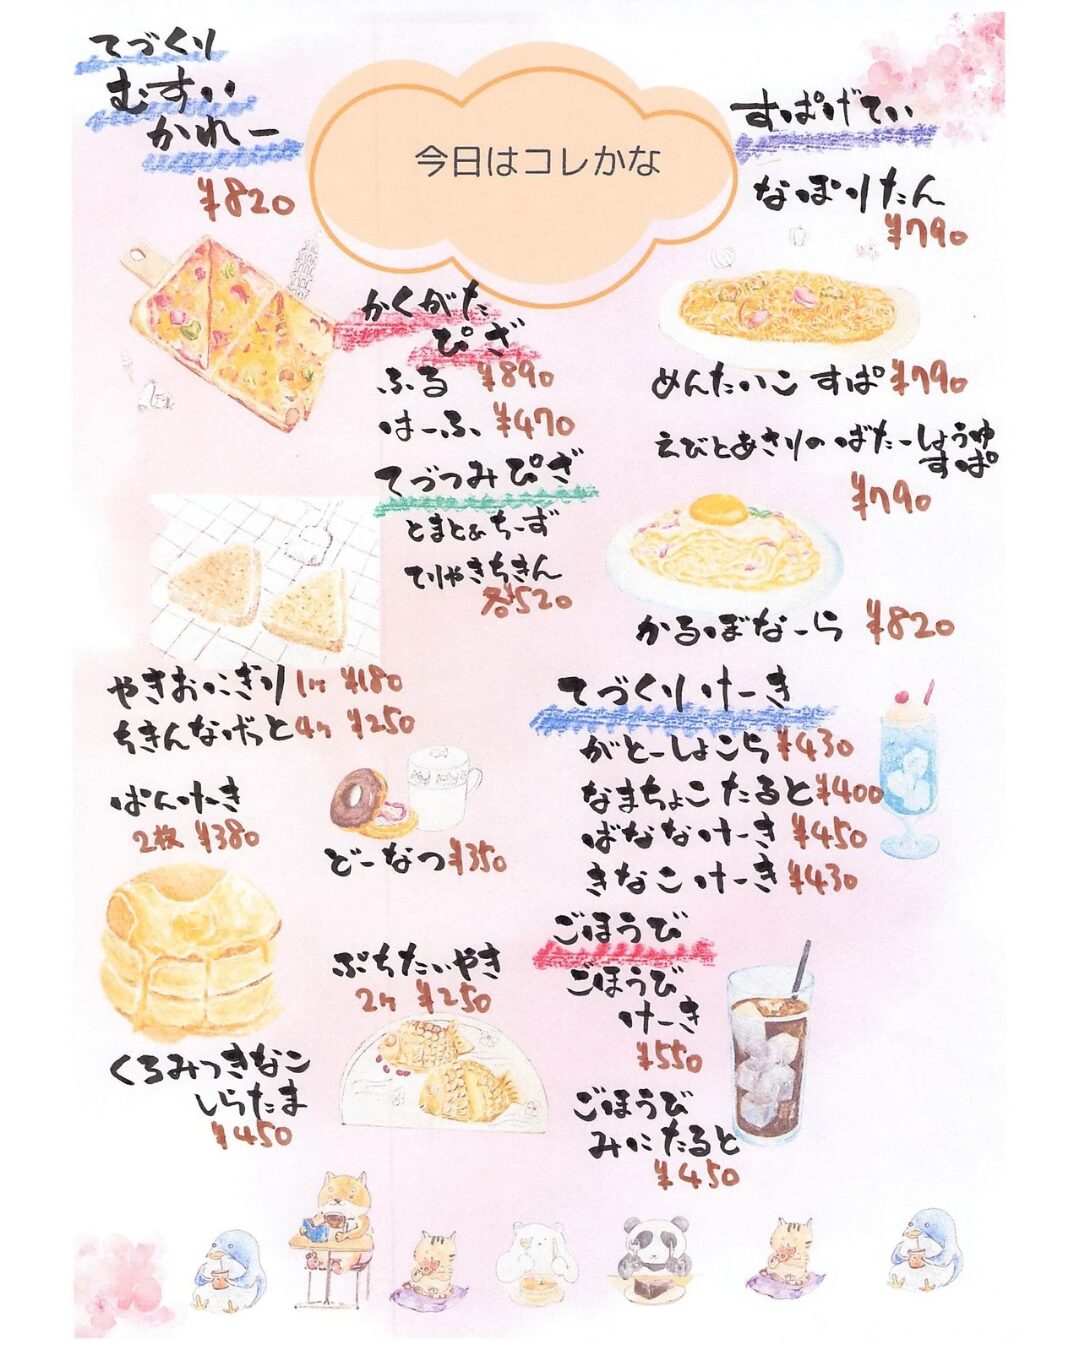 てづくり
むすい
かれー
¥820
今日はコレかな
すぱげてい
なぽりたん
¥790
かくがた
ぴざ
ふる ¥890
はーふ ¥470
てづつみぴざ
とまと&ちーず
てりやきちきん
各¥520
めんたいこ すぱ ¥790
えびとあさりの ばたーしょうゆ
すぱ
¥790
かるぼなーら ¥820
やきおにぎり 1ヶ ¥180
ちきんなげっと 4ヶ ¥250
ぱんけーき
2枚 ¥380
どーなつ ¥350
くろみつきなこ
しらたま
¥450
ぷちたいやき
2ヶ ¥250
てづくりけーき
がとーしょこら ¥430
なまちょこ たると ¥400
ばななけーき ¥450
きなこけーき ¥430
ごほうび
ごほうび
けーき
¥550
ごほうび
みにたると
¥450